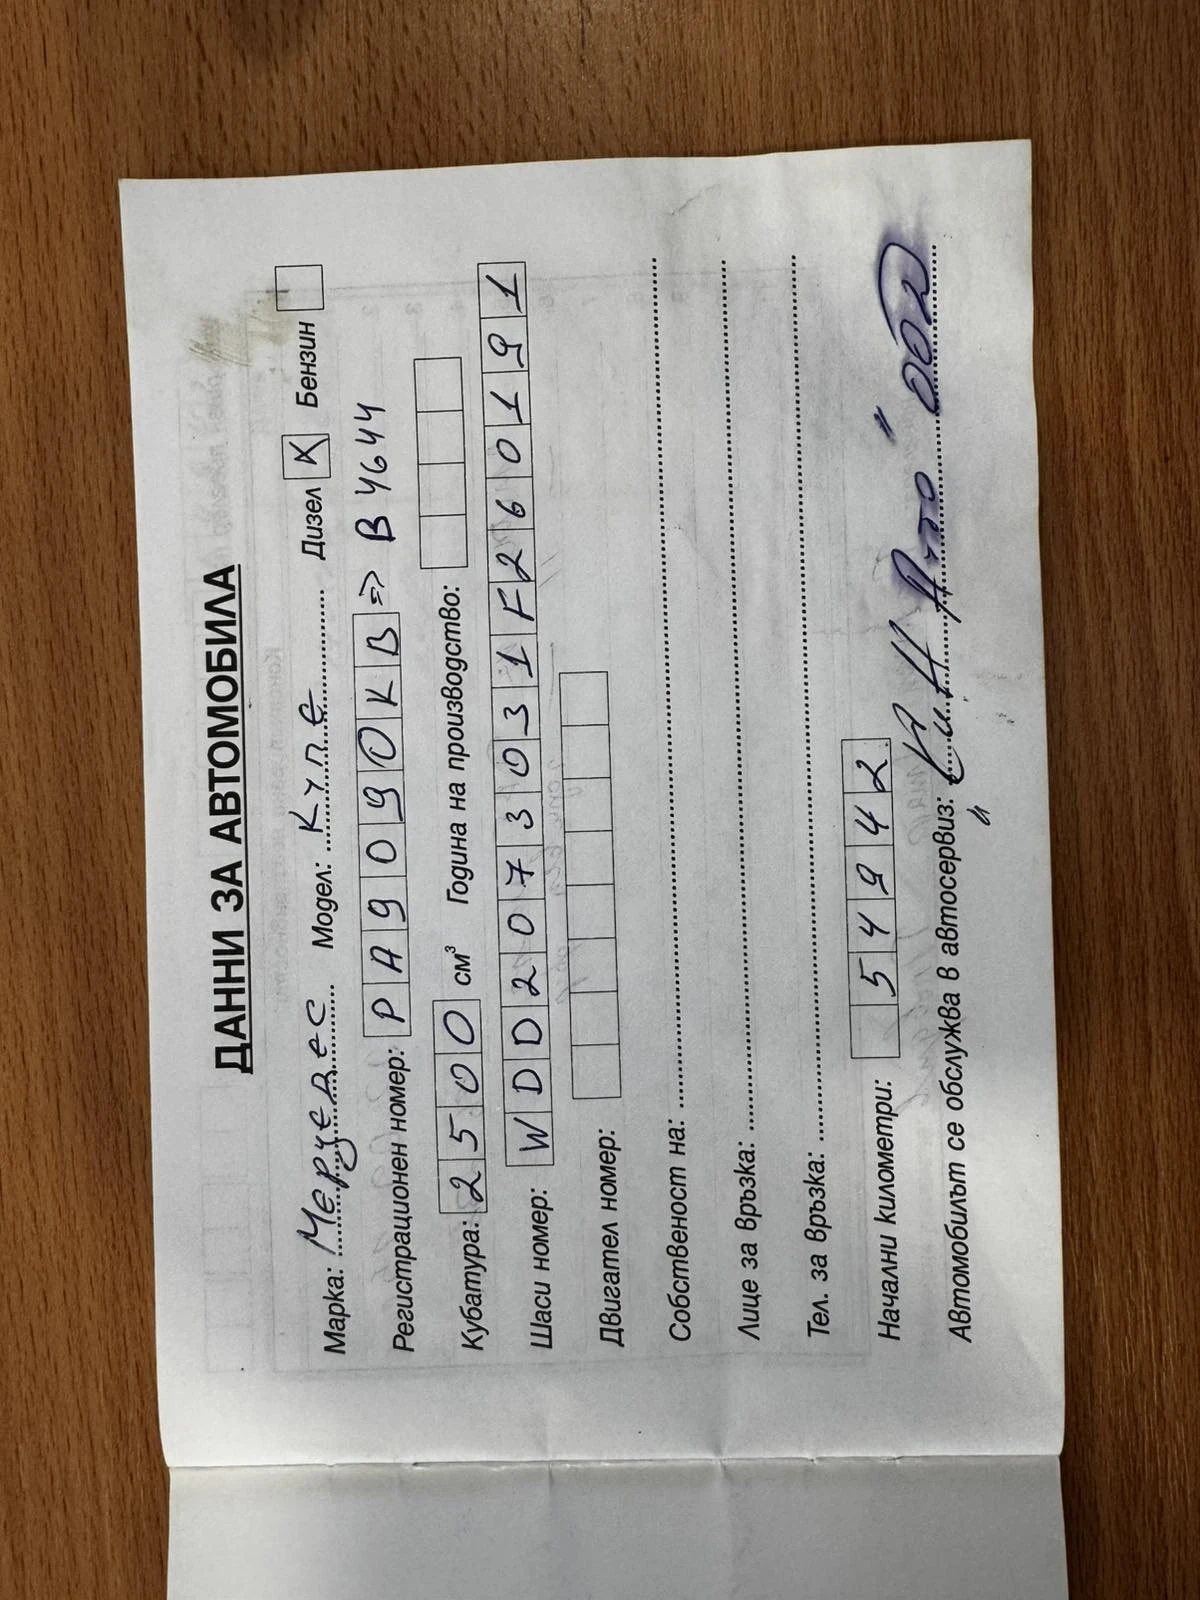 ДАННИ ЗА АВТОМОБИЛА
Марка: Мерцедес Модел: Купе Дизел X Бензин
Регистрационен номер: РА9090КВ => В 4644
Кубатура: 2500 см³ Година на производство:
Шаси номер: WDD2073031F260191
Двигател номер:
Собственост на:
Лице за връзка:
Тел. за връзка:
Начални километри: 54942
Автомобилът се обслужва в автосервиз: Ауто ООД